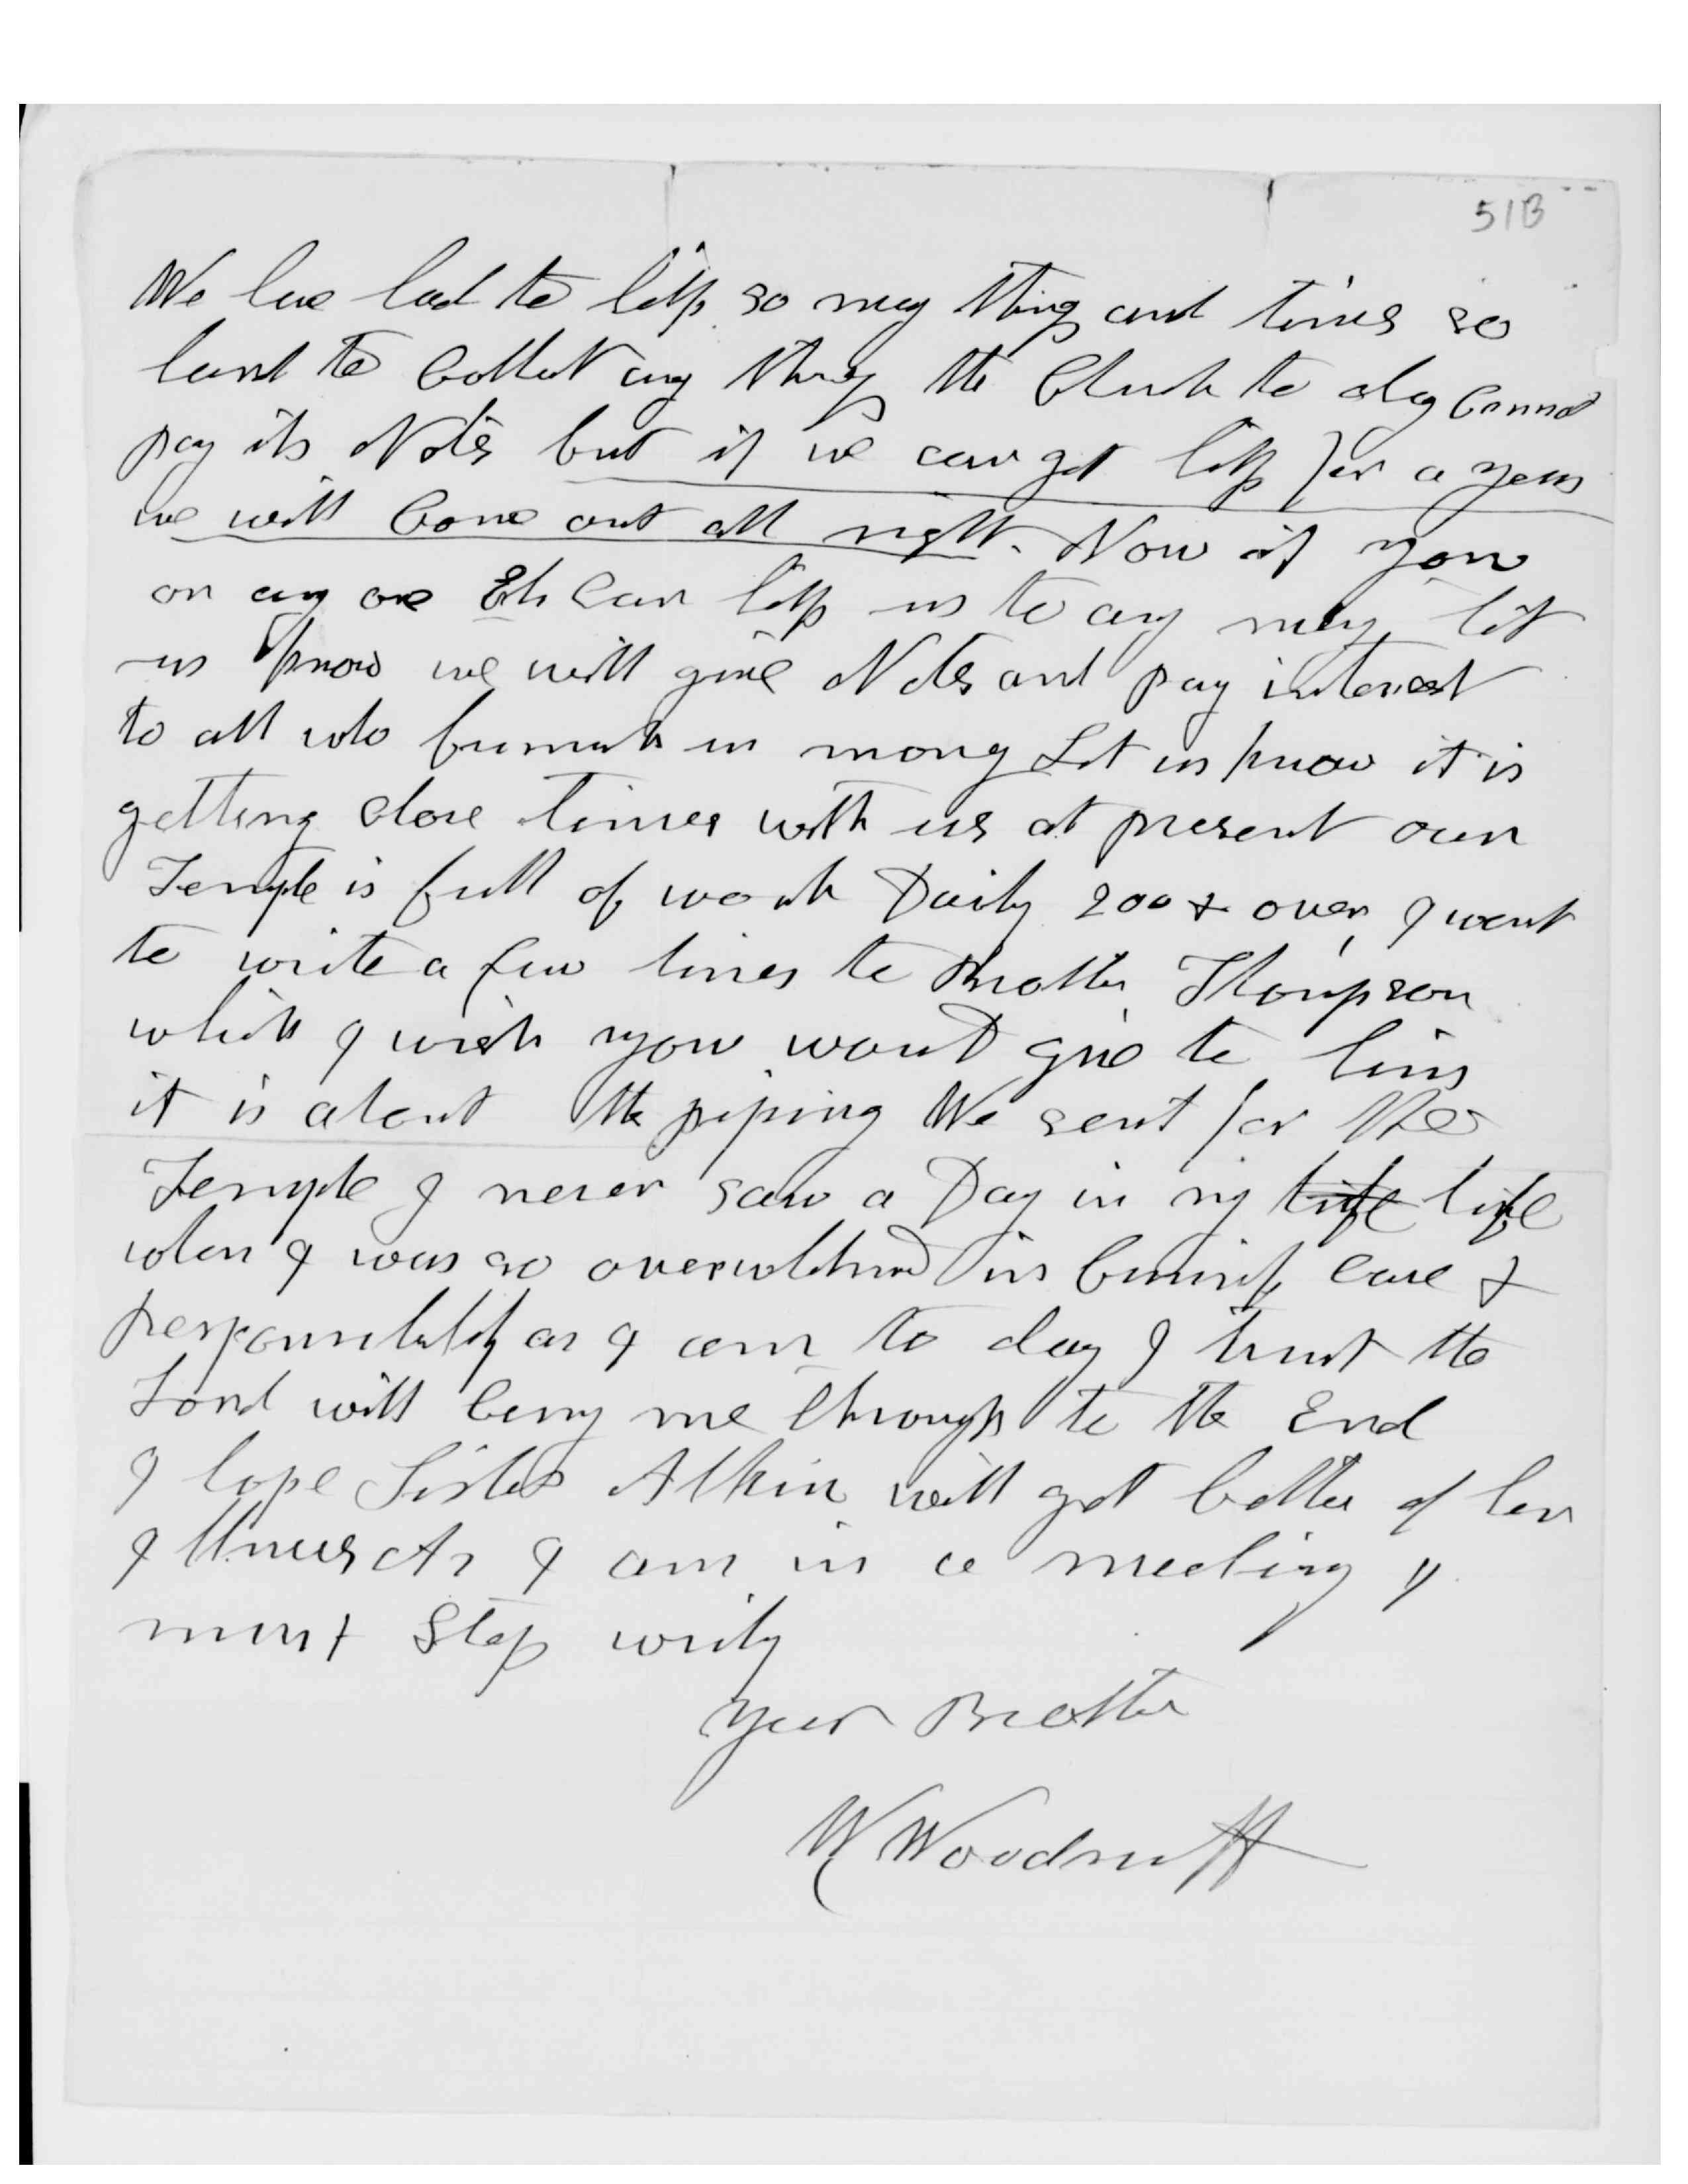 51B
We have had to help so many things and times so
hard to Collect any thing the Church to day Cannot
pay its Notes but if we can get help for a year
we will Come out all right. Now if you
or any one Els Can help us to any money let
us know we will give Notes and pay interest
to all who furnish us money Let us know it is
getting close times with us at present our
Temple is full of work Daily 200 & over, I want
to write a few lines to Brother Thompson
which I wish you would give to him
it is about the piping We sent for the
Temple I never saw a Day in my life life
when I was so overwhelmed in business care &
responsibility as I am to day I trust the
Lord will bring me through to the End
I hope Sister Atkin will get better of her
Illness As I am in a meeting I
must Stop writing
Your Brother
W Woodruff